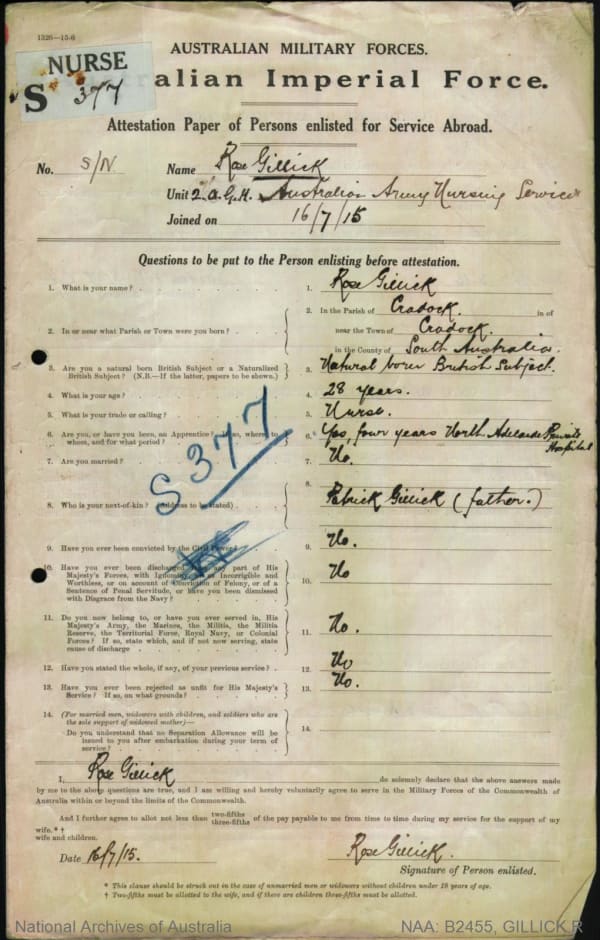 1326—15-6
NURSE
S 377
AUSTRALIAN MILITARY FORCES.
alian Imperial Force.
Attestation Paper of Persons enlisted for Service Abroad.
No. S/N Name Rose Gillick
Unit 2.A.G.H. Australian Army Nursing Service
Joined on 16/7/15
Questions to be put to the Person enlisting before attestation.
1. What is your name? 1. Rose Gillick
2. In or near what Parish or Town were you born? 2. In the Parish of Cradock. in or
near the Town of Cradock.
in the County of South Australia
3. Are you a natural born British Subject or a Naturalized British Subject? (N.B.—If the latter, papers to be shown.) 3. Natural born British Subject.
4. What is your age? 4. 28 years.
5. What is your trade or calling? 5. Nurse.
6. Are you, or have you been, an Apprentice? If so, where, to whom, and for what period? 6. Yes, four years North Adelaide Private Hospital
7. Are you married? 7. No.
S 377
8. Who is your next-of-kin? (Address to be stated) 8. Patrick Gillick (father.)
9. Have you ever been convicted by the Civil Power? 9. No.
10. Have you ever been discharged from any part of His
Majesty's Forces, with Ignominy, or as Incorrigible and
Worthless, or on account of Conviction of Felony, or of a
Sentence of Penal Servitude, or have you been dismissed
with Disgrace from the Navy? 10. No
11. Do you now belong to, or have you ever served in, His
Majesty's Army, the Marines, the Militia, the Militia
Reserve, the Territorial Force, Royal Navy, or Colonial
Forces? If so, state which, and if not now serving, state
cause of discharge 11. No.
12. Have you stated the whole, if any, of your previous service? 12. No
13. Have you ever been rejected as unfit for His Majesty's
Service? If so, on what grounds? 13. No.
14. (For married men, widowers with children, and soldiers who are
the sole support of widowed mother)—
Do you understand that no Separation Allowance will be
issued to you after embarkation during your term of
service? 14.
I, Rose Gillick do solemnly declare that the above answers made
by me to the above questions are true, and I am willing and hereby voluntarily agree to serve in the Military Forces of the Commonwealth of
Australia within or beyond the limits of the Commonwealth.
And I further agree to allot not less than two-fifths three-fifths of the pay payable to me from time to time during my service for the support of my
wife.* †
wife and children.
Date 16/7/15. Rose Gillick.
Signature of Person enlisted.
* This clause should be struck out in the case of unmarried men or widowers without children under 18 years of age.
† Two-fifths must be allotted to the wife, and if there are children three-fifths must be allotted.
National Archives of Australia NAA: B2455, GILLICK R